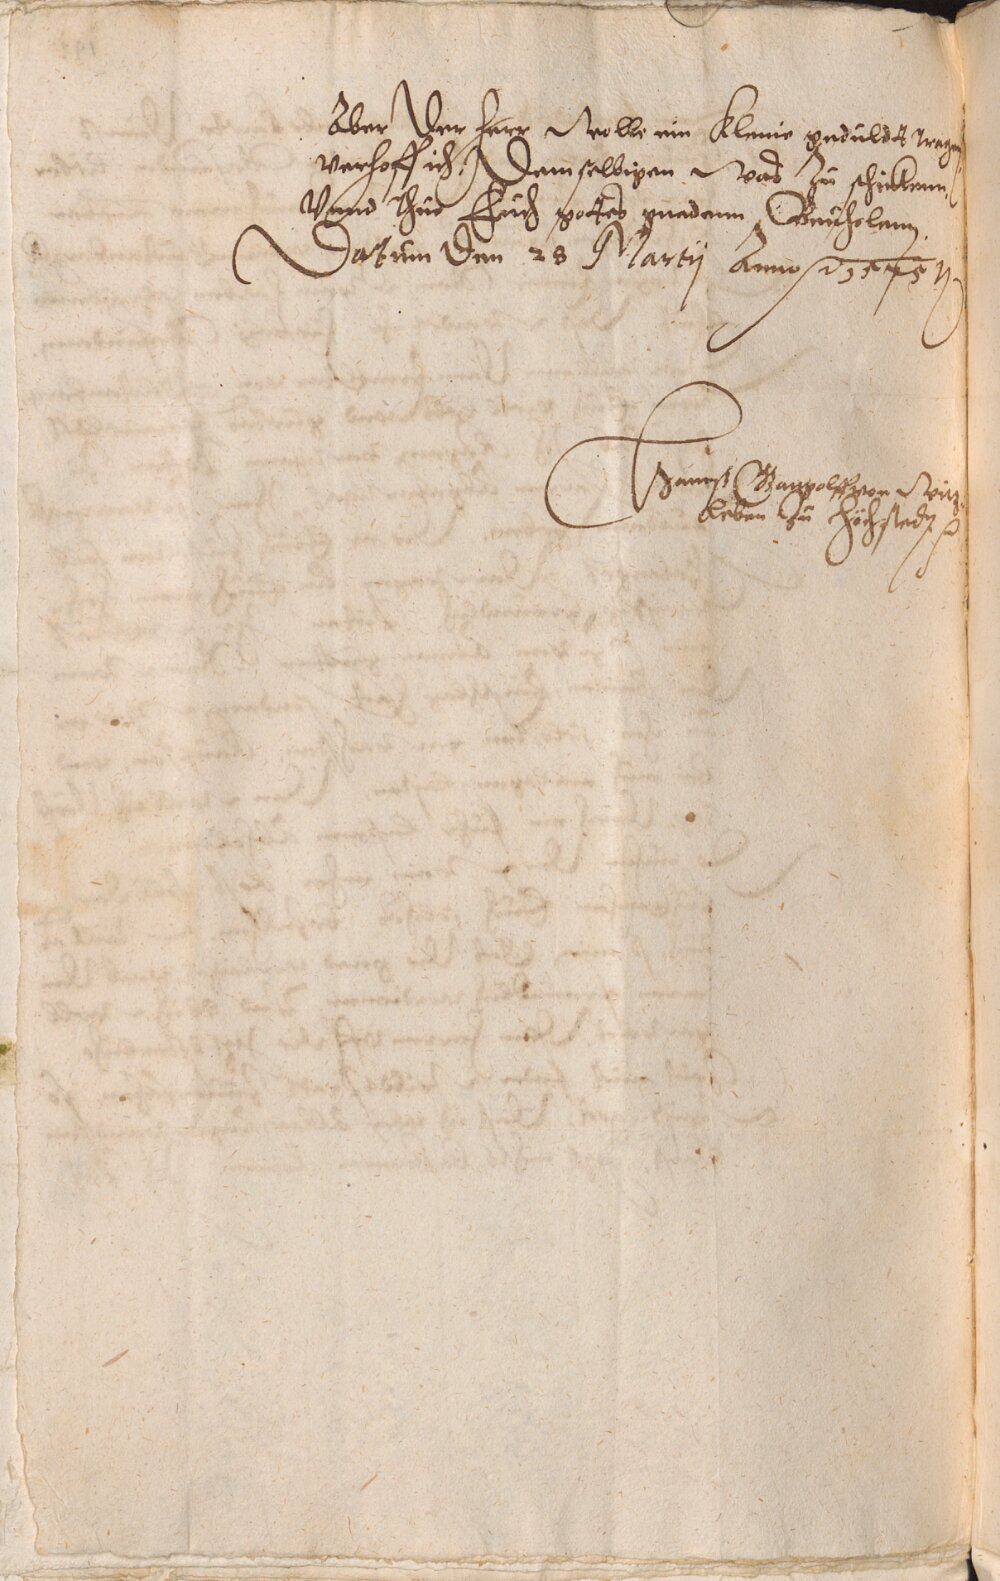 Aber der herr wolle ein kleine gedüldt tragen
verhoff ich demselbigen was zu schicken.
Vnnd thue Euch gottes gnadenn Beuhelenn.
Datum den 28 Martij Anno 1575
Hannß von Witz-
leben zu höchstedt